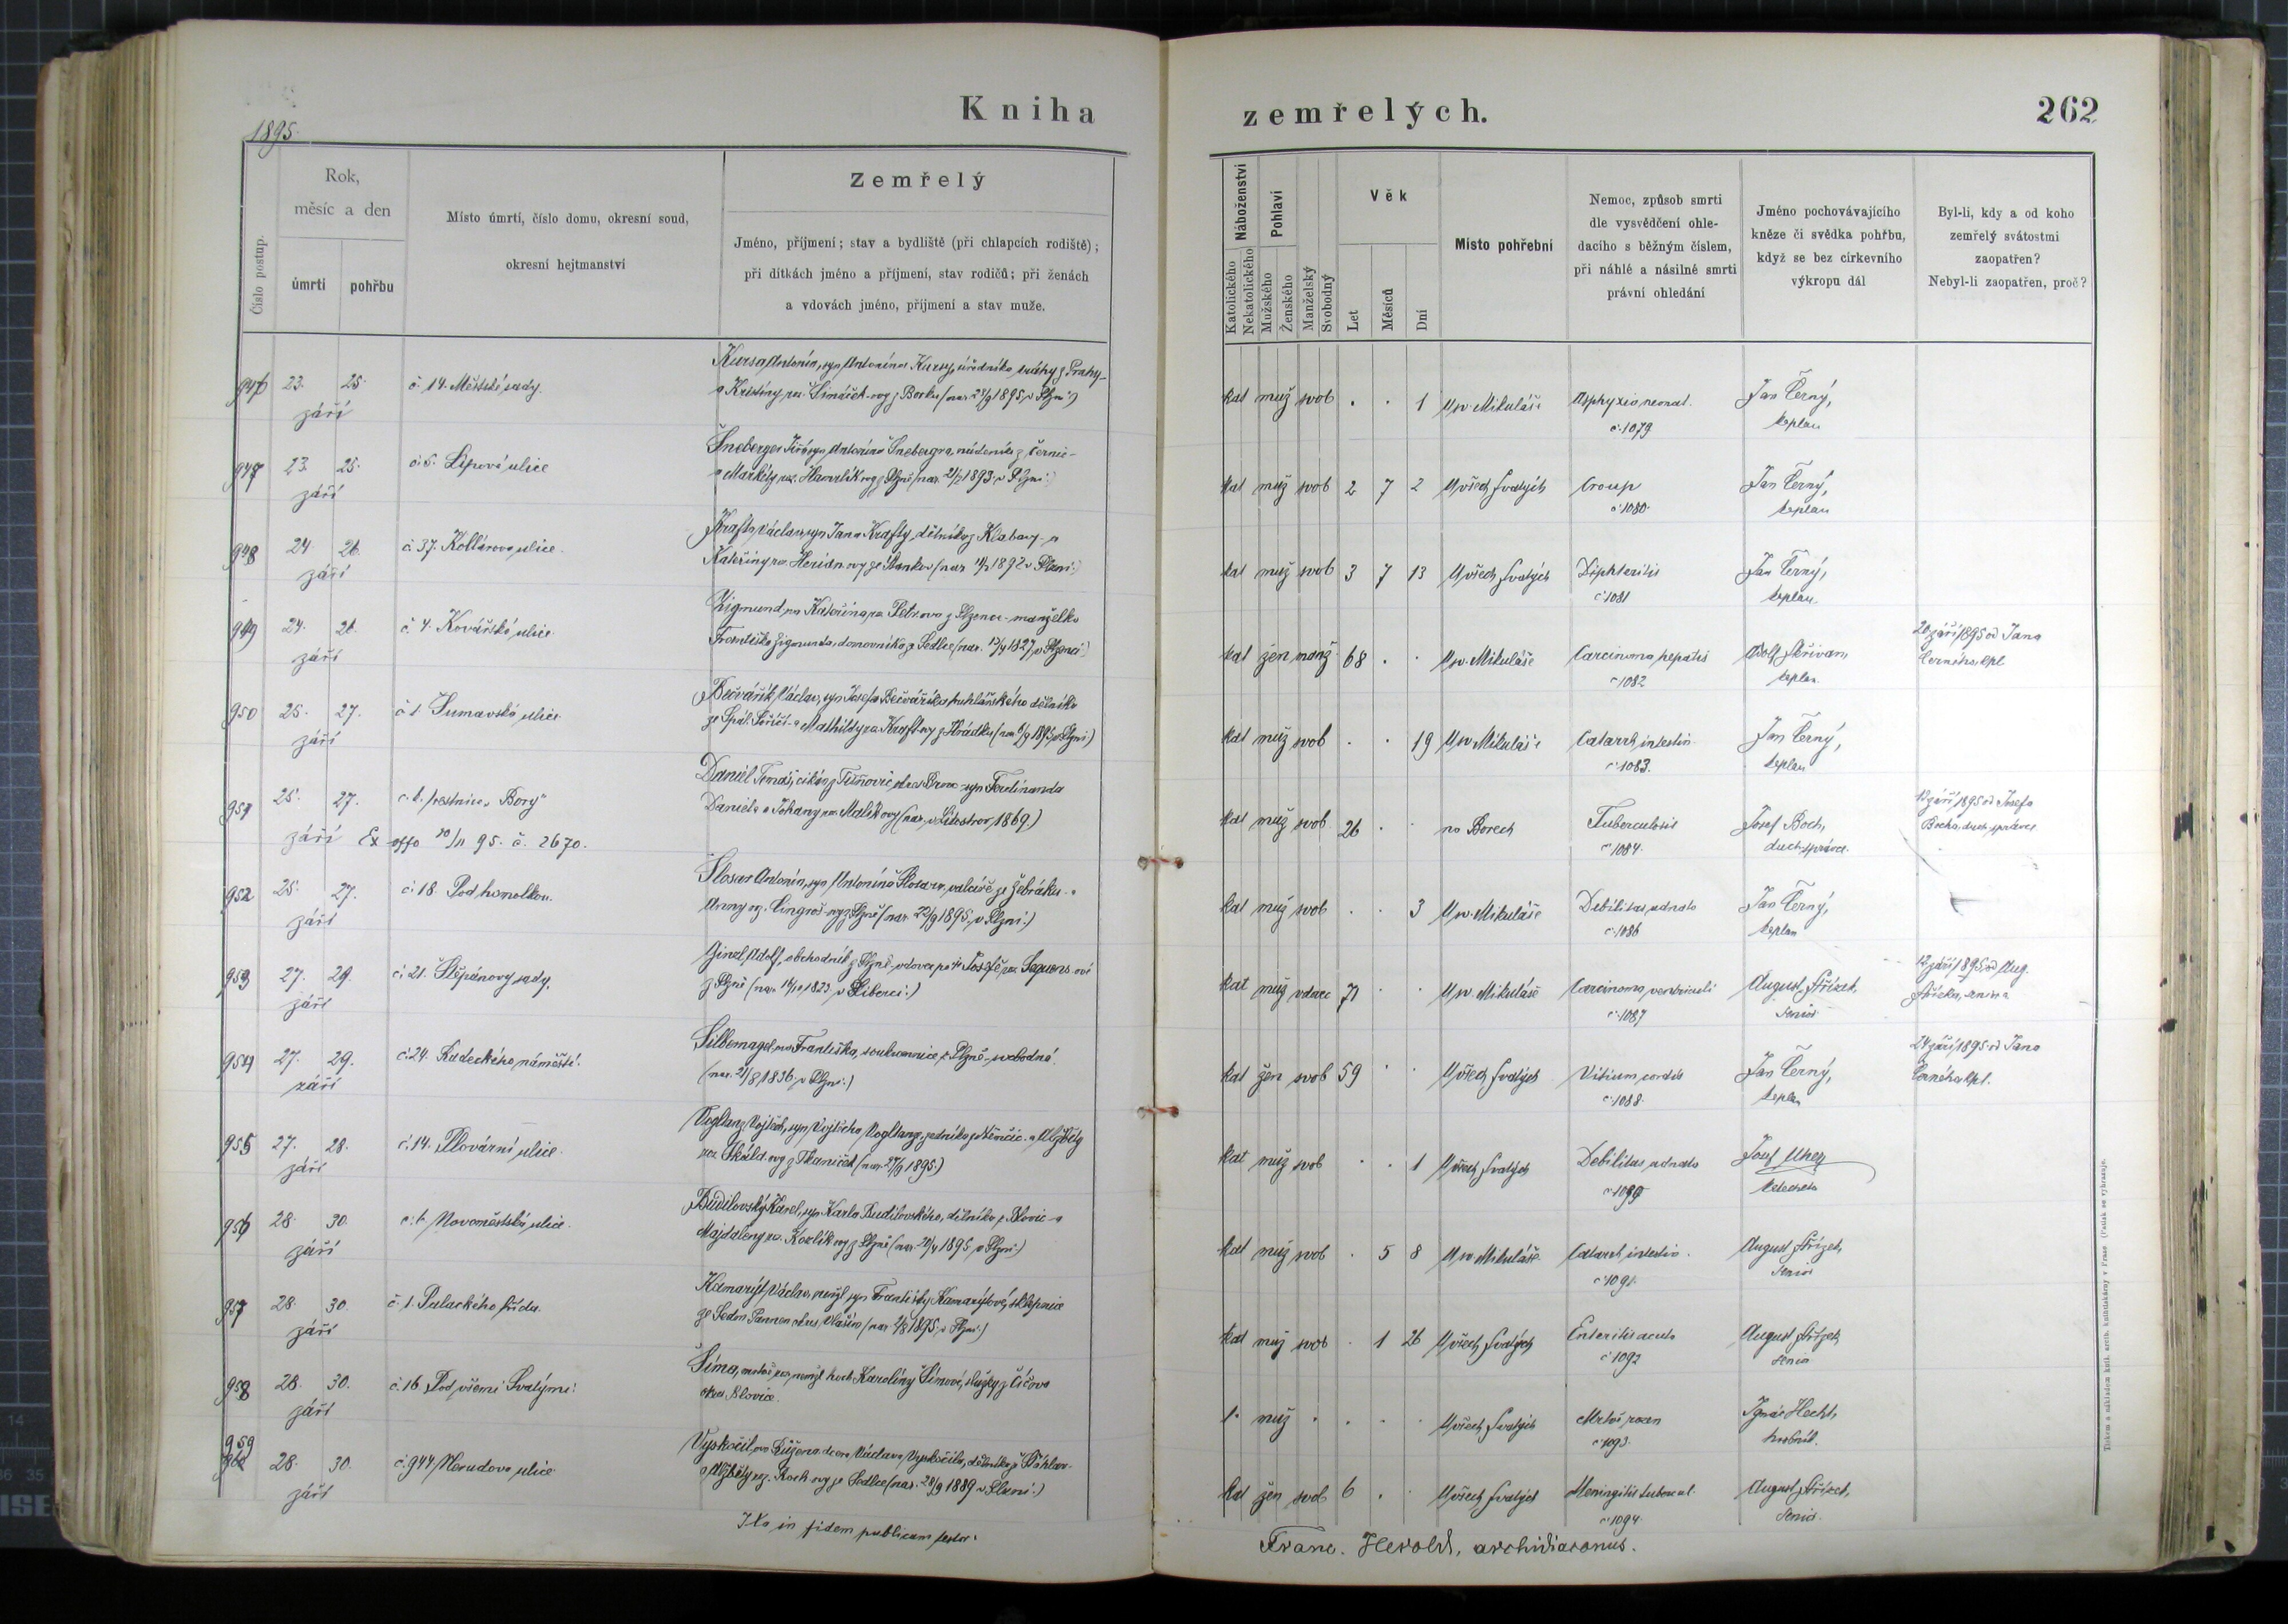 Kniha
zemřelých.
262
1895.
Číslo postup.
Rok,
měsíc a den
úmrtí
pohřbu
Místo úmrtí, číslo domu, okresní soud,
okresní hejtmanství
Zemřelý
Jméno, příjmení; stav a bydliště (při chlapcích rodiště);
při dítkách jméno a příjmení, stav rodičů; při ženách
a vdovách jméno, příjmení a stav muže.
Náboženství
Katolického
Nekatolického
Pohlaví
Mužského
Ženského
Manželský
Svobodný
Věk
Let
Měsíců
Dní
Místo pohřební
Nemoc, způsob smrti
dle vysvědčení ohle-
dacího s běžným číslem,
při náhlé a násilné smrti
právní ohledání
Jméno pochovávajícího
kněze či svědka pohřbu,
když se bez církevního
výkropu dál
Byl-li, kdy a od koho
zemřelý svátostmi
zaopatřen?
Nebyl-li zaopatřen, proč?
946 23. 25. č. 14. Městské sady.
září
Antonín, syn Antonína úředníka z Prahy
1895 v Plzni)
kat muž svob . . 1 U sv. Mikuláše Asphyxia neonat. Jan Černý,
č. 1079 kaplan
947 23. 25. č. 5. Lipová ulice
září
Šneberger Jiří, syn Antonína Šnebergra, nádeníka z Černic
a Markéty roz. z Plzně (nar. 1893 v Plzni)
kat muž svob 2 7 2 U všech svatých Croup Jan Černý,
č. 1080 kaplan
948 24. 26. č. 37. Kollárova ulice.
září
Krafta Václav, syn Jana Krafty, dělníka z Klabavy a
Kateřiny roz. ze Stankova (nar. 1892 v Plzni)
kat muž svob 3 7 13 U všech svatých Diphteritis Jan Černý,
č. 1081 kaplan.
949 24. 26. č. 4. Kovářská ulice.
září
Zigmundova Kateřina roz. Petrova z Plzence manželka
Františka Zigmunda, domovníka z Sedlce (nar. 1827 v Plzenci)
kat žen manž 68 . . U sv. Mikuláše Carcinoma hepatis Adolf Skřivan,
č. 1082 kaplan.
20 září 1895 od Jana
Černého, kpl.
950 25. 27. č. 1. Šumavská ulice.
září
Bečvářík Václav, syn Josefa Bečváříka, truhlářského dělníka
ze Spál. Poříčí a Mathildy roz. Kraft-ovy z Hrádku (nar. 6/9 1895 v Plzni)
kat muž svob . . 19 U sv. Mikuláše Catarrh intestin. Jan Černý,
č. 1083. kaplan
951 25. 27. č. 6. trestnice „Bory"
září Ex offo 20/11 95. č. 2670.
Daniel Tomáš, cikán z syn Ferdinanda
Daniela a Johany roz. Malíkovy (nar. v 1869.)
kat muž svob. 26 . . na Borech Tuberculosis Josef Boch,
č. 1084. duch. správce.
září 1895 od Josefa
Bocha, duch. správce
952 25. 27. č. 18. Pod homolkou.
září
Šlosar Antonín, syn Antonína Šlosara, valcíře ze Žebráku a
Anny roz. z Plzně (nar. 22/9 1895, v Plzni.)
kat muž svob . . 3 U sv. Mikuláše Debilitas adnata Jan Černý,
č. 1086 kaplan
953 27. 29. č. 21. Štěpánovy sady.
září
Adolf, obchodník z Plzně, vdovec po † Josefě roz. Sequens-ové
z Plzně (nar. v Liberci.)
kat muž vdovec 71 . . U sv. Mikuláše Carcinoma ventriculi August Střízek,
č. 1087 senior
12 září 1895 od Aug.
Střízka, seniora
954 27. 29. č. 24. Radeckého náměstí.
září
Františka, soukromnice z Plzně, svobodná.
(nar. 1836, v Plzni.)
kat žen svob 59 . . U všech svatých Vitium cordis Jan Černý,
č. 1088. kaplan
24 září 1895 od Jana
Černého, kpl.
955 27. 28. č. 14. Plovární ulice.
září
Vogltanz Vojtěch, syn Vojtěcha Vogltanze, zedníka z Němčic a Alžběty
roz. z Tkaniček (nar. 27/9 1895.)
kat muž svob . . 1 U všech svatých Debilitas adnata Josef Uher
č. 1090 katecheta
956 28. 30. č. 6. Novoměstská ulice.
září
Budilovský Karel, syn Karla Budilovského, dělníka z Blovic a
Majdaleny roz. Kozlík-ovy z Plzně (nar. 20/4 1895 v Plzni.)
kat muž svob . 5 8 U sv. Mikuláše Catarrh intestin. August Střízek,
č. 1091. senior
957 28. 30. č. 1. Palackého třída.
září
Kamarýt Václav, nemžl. syn Františky Kamarýtové, sklepnice
ze Sedm Pannen okres Vlašim (nar. 2/8 1895, v Plzni.)
kat muž svob . 1 26 U všech svatých Enteritis acuta August Střízek,
č. 1092 senior
958 28. 30. č. 16. Pod všemi Svatými.
září
Šíma, mrtvě roz. nemžl. hoch Karolíny Šímové, služky z Číčova
okres Blovice.
1. muž . . . . U všech svatých Mrtvě rozen Ignác Hecht,
č. 1093. hrobník.
959 28. 30. č. 944 Nerudova ulice
září
Vyskočilova Růžena, dcera Václava Vyskočila, dělníka z
a Alžběty roz. Koch-ovy ze Sedlce (nar. 28/9 1889 v Plzni.)
kat žen svob 6 . . U všech svatých Meningitis tubercul. August Střízek,
č. 1094. senior.
Ita in fidem publicam testor:
Franc. Herold, archidiaconus.
Tiskem a nákladem kníž. arcib. knihtiskárny v Praze (Patisk se vyhrazuje.